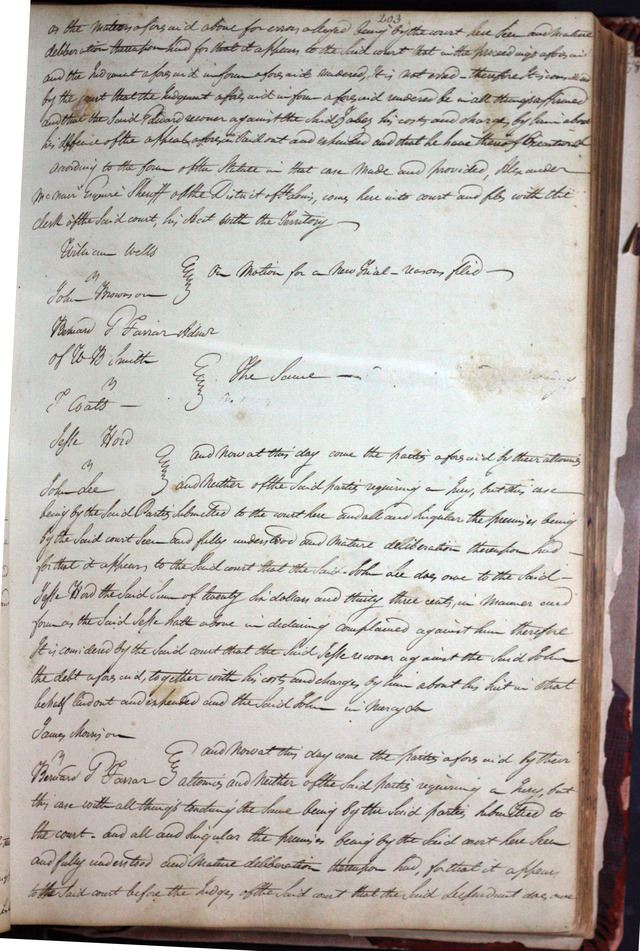 203
as the matters aforesaid above for errors alleged being by the court here seen and mature
deliberation thereupon had for that it appears to the said court that in the proceedings aforesaid
and the Judgment aforesaid in form aforesaid rendered, It is not erred - therefore It is considered
by the court that the Judgment aforesaid in form aforesaid rendered be in all things affirmed
and that the said Edward recover against the said James his costs and charges by him about
his defence of the appeal aforesaid laid out and expended and that he have thereof Execution &
According to the form of the Statute in that case made and provided, Alexander
McNair Esquire Sheriff of the District of St Louis, comes here into court and files with the
clerk of the said court, his acct with the Territory
William Wells
vs
John Brownson
On Motion for a New Trial - reasons filed
Bernard G Farrar Admr
of W B Smith
vs
T Coats
The Same
Jesse Hord
vs
John Lee
and Now at this day come the parties aforesaid by their attornies
and Neither of the said parties requiring a Jury, but this case
being by the said Parties submitted to the court here and all and singular the premises being
by the said court seen and fully understood and Mature deliberation thereupon had
for that it appears to the said court that the said John Lee does owe to the said
Jesse Hord the said sum of twenty six dollars and thirty three cents, in Manner and
form as the said Jesse hath above in declaring complained against him therefore
It is considered by the said court that the said Jesse recover against the said John
the debt aforesaid, together with his costs and charges by him about his suit in that
behalf laid out and expended and the said John in mercy &c
James Morrison
vs
Bernard G Farrar
and Now at this day come the parties aforesaid by their
attornies and Neither of the said parties requiring a Jury, but
this case with all things touching the same being by the said parties submitted to
the court - and all and singular the premises being by the said court here seen
and fully understood and Mature deliberation thereupon had, for that it appears
to the said court before the Judges of the said court that the said defendant does owe